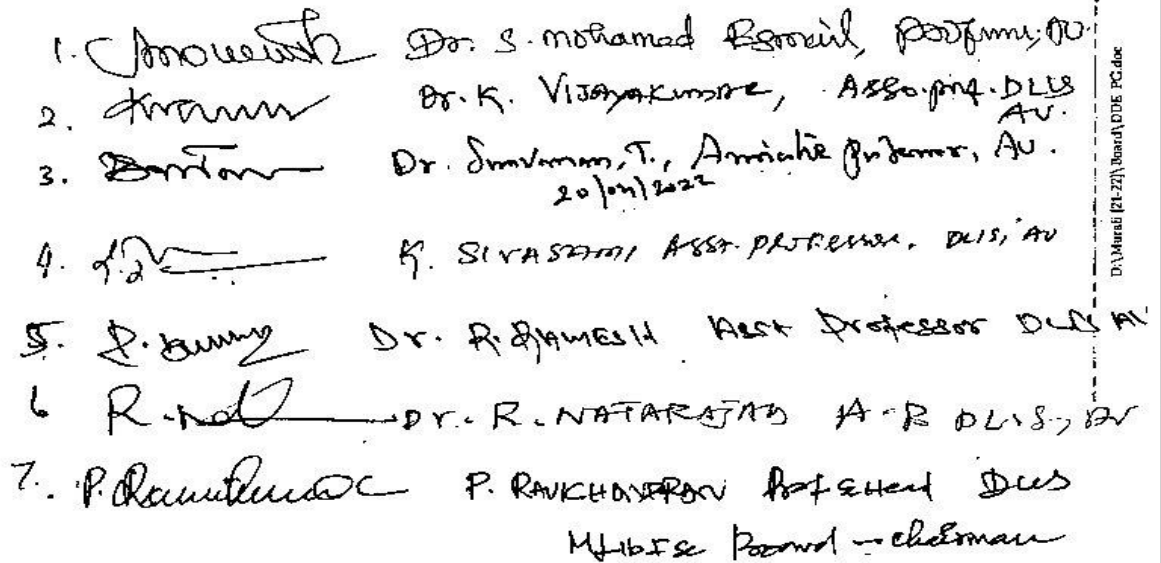 1. Dr. S. Mohamed Esmail, Professor, AU.
2. Dr. K. VIJAYAKUMAR, Asso. prof. DLIS
AU.
3. Dr. Saravanan, T., Associate Professor, AU.
20/04/2022
4. K. SIVASAMI, ASST. PROFESSOR, DLIS, AU
5. Dr. R. RAMESH Asst Professor DLIS AU
6 R. Nat Dr. R. NATARAJAN A.P DLIS., AU
7. P. Ravichandran P. RAVICHANDRAN Prof & Head DLIS
M.Lib.I.Sc Board - Chairman
D:\Murali [21-22]\Board\DDE PG.doc